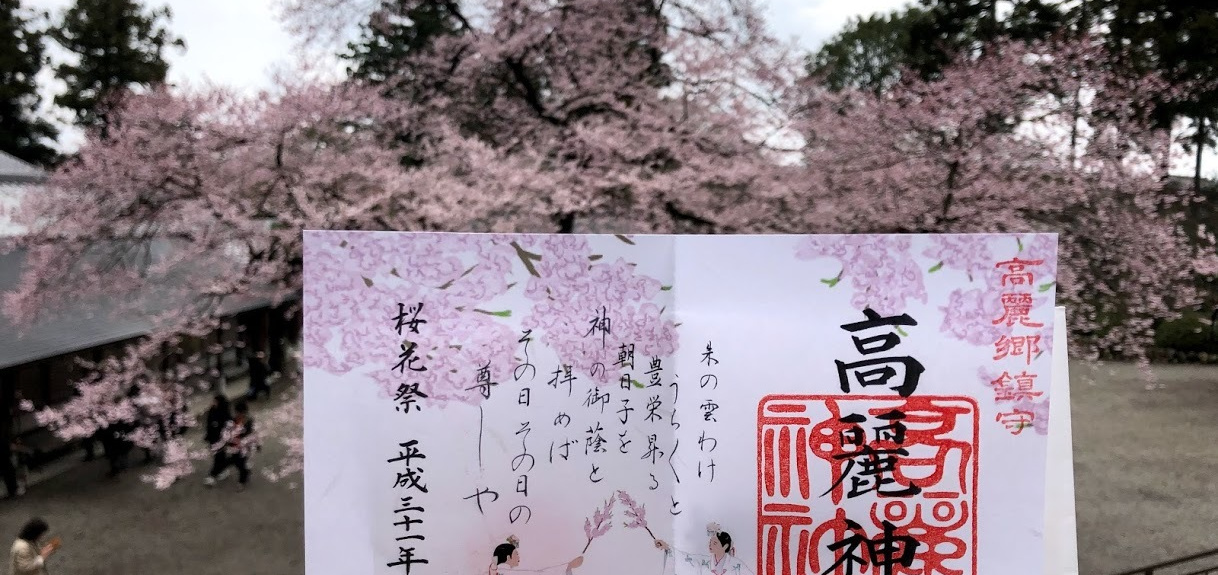 高麗郷鎮守
高麗神
朱の雲わけ
うらうらと
豊栄昇る
朝日子を
神の御蔭と
拝めば
その日その日の
尊しや
桜花祭 平成三十一年